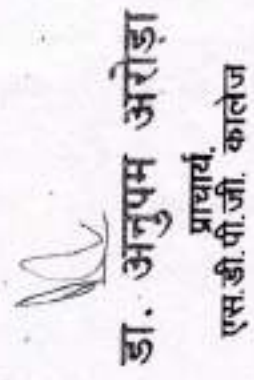 डा. अनुपम अरोड़ा
प्राचार्य,
एस.डी.पी.जी. कालेज